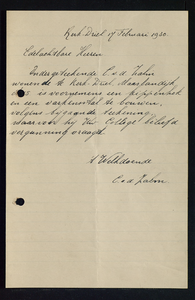 Kerk Driel 17 Februari 1930.
Edelachtbare Heeren
Ondergeteekende C. v. d. Zalm
wonende te Kerk Driel, Maasbandijk
is voornemens een kippenhok
en een varkensstal te bouwen,
volgens bijgaande teekening,
waarvoor hij Uw College beleefd
vergunning vraagt.
't Welk doende
C. v. d. Zalm